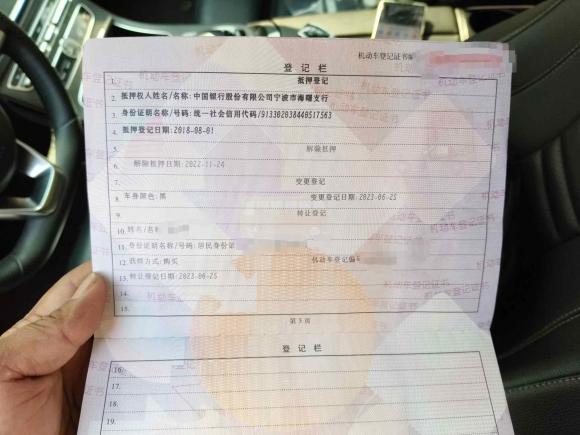 机动车登记证书编
登记栏
1. 抵押登记
2. 抵押权人姓名/名称:中国银行股份有限公司宁波市海曙支行
3. 身份证明名称/号码:统一社会信用代码/913302038440517563
4. 抵押登记日期:2018-08-01
5. 解除抵押
6. 解除抵押日期:2022-11-24
7. 变更登记
8. 车身颜色:黑 变更登记日期:2023-06-25
9. 转让登记
10. 姓名/名
11. 身份证明名称/号码:居民身份证
12. 获得方式:购买 机动车登记编
13. 转让登记日期:2023-06-25
14.
15.
第3页
登记栏
16.
17.
18.
19.